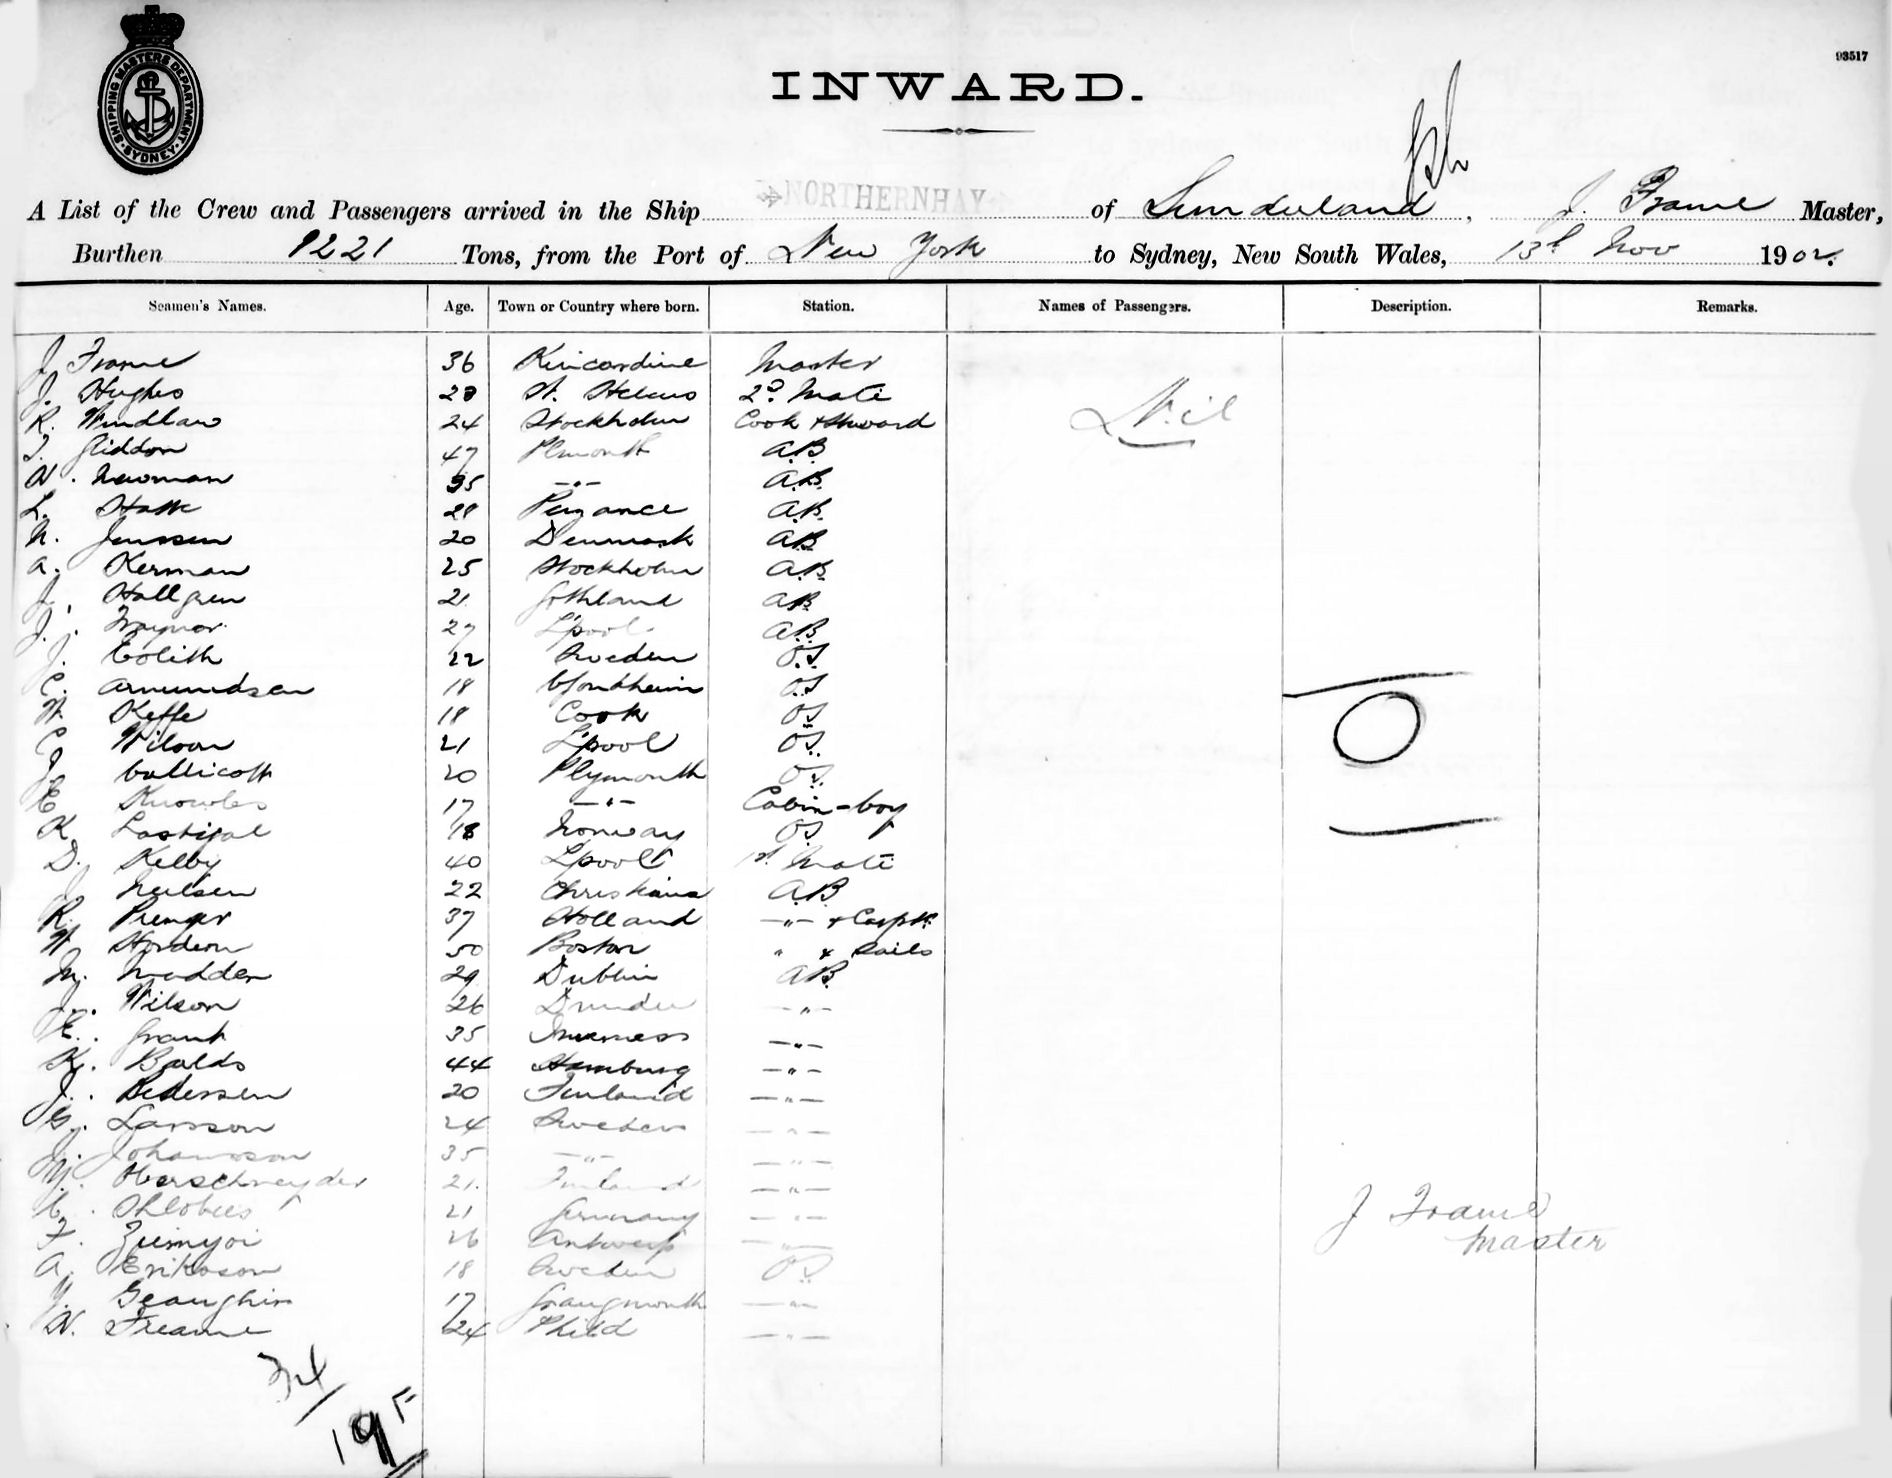 93517
SHIPPING MASTERS DEPARTMENT SYDNEY
INWARD.
A List of the Crew and Passengers arrived in the Ship NORTHERNHAY of Sunderland, J. Frame Master,
Burthen 1221 Tons, from the Port of New York to Sydney, New South Wales, 13th Nov 1902.
Seamen's Names. Age. Town or Country where born. Station. Names of Passengers. Description. Remarks.
J Frame 36 Kincardine Master
J. Hughes 28 St. Helens 2d Mate Nil
R. Windlaw 24 Stockholm Cook & Steward
T. Gliddon 47 Plmouth A.B
W. Newman 35 —"— A.B.
L. 28 Penzance A.B.
N. Jenssen 20 Denmark A.B
A. Kerman 25 Stockholm A.B.
J. Hallgren 21 Gothland AB
J. Traynor 27 L'pool A.B
J. 22 Sweden O.S
C. Amundsen 18 O.S
W. Keffe 18 Cook OS
C. Wilson 21 L'pool OS.
J. Callicott 20 Plymouth OS.
E Knowles 17 —"— Cabin-boy
K. 18 Norway OS
D. Kelby 40 L'pool 1st Mate
J. Neilsen 22 Christiania A.B
R. Prenger 37 Holland —"— & Carptr.
W. 50 Boston " & Sails
M. Madden 29 Dublin A.B.
J. Wilson 26 Dundee —"—
E. Grant 35 Inverness —"—
K. Balds 44 Hamburg —"—
J. Pedersen 20 Finland —"—
G. Larsson 24 Sweden —"—
J. Johansson 35 —"— —"—
M. Oberschneyder 21. Finland —"—
21 Germany —"—
F. 26 Antwerp —"—
A. Erikson 18 Sweden O.S
J. Geaughin 17 Graugmouth —"—
W. Freame 24 Phild —"—
J Frame
Master
34
19